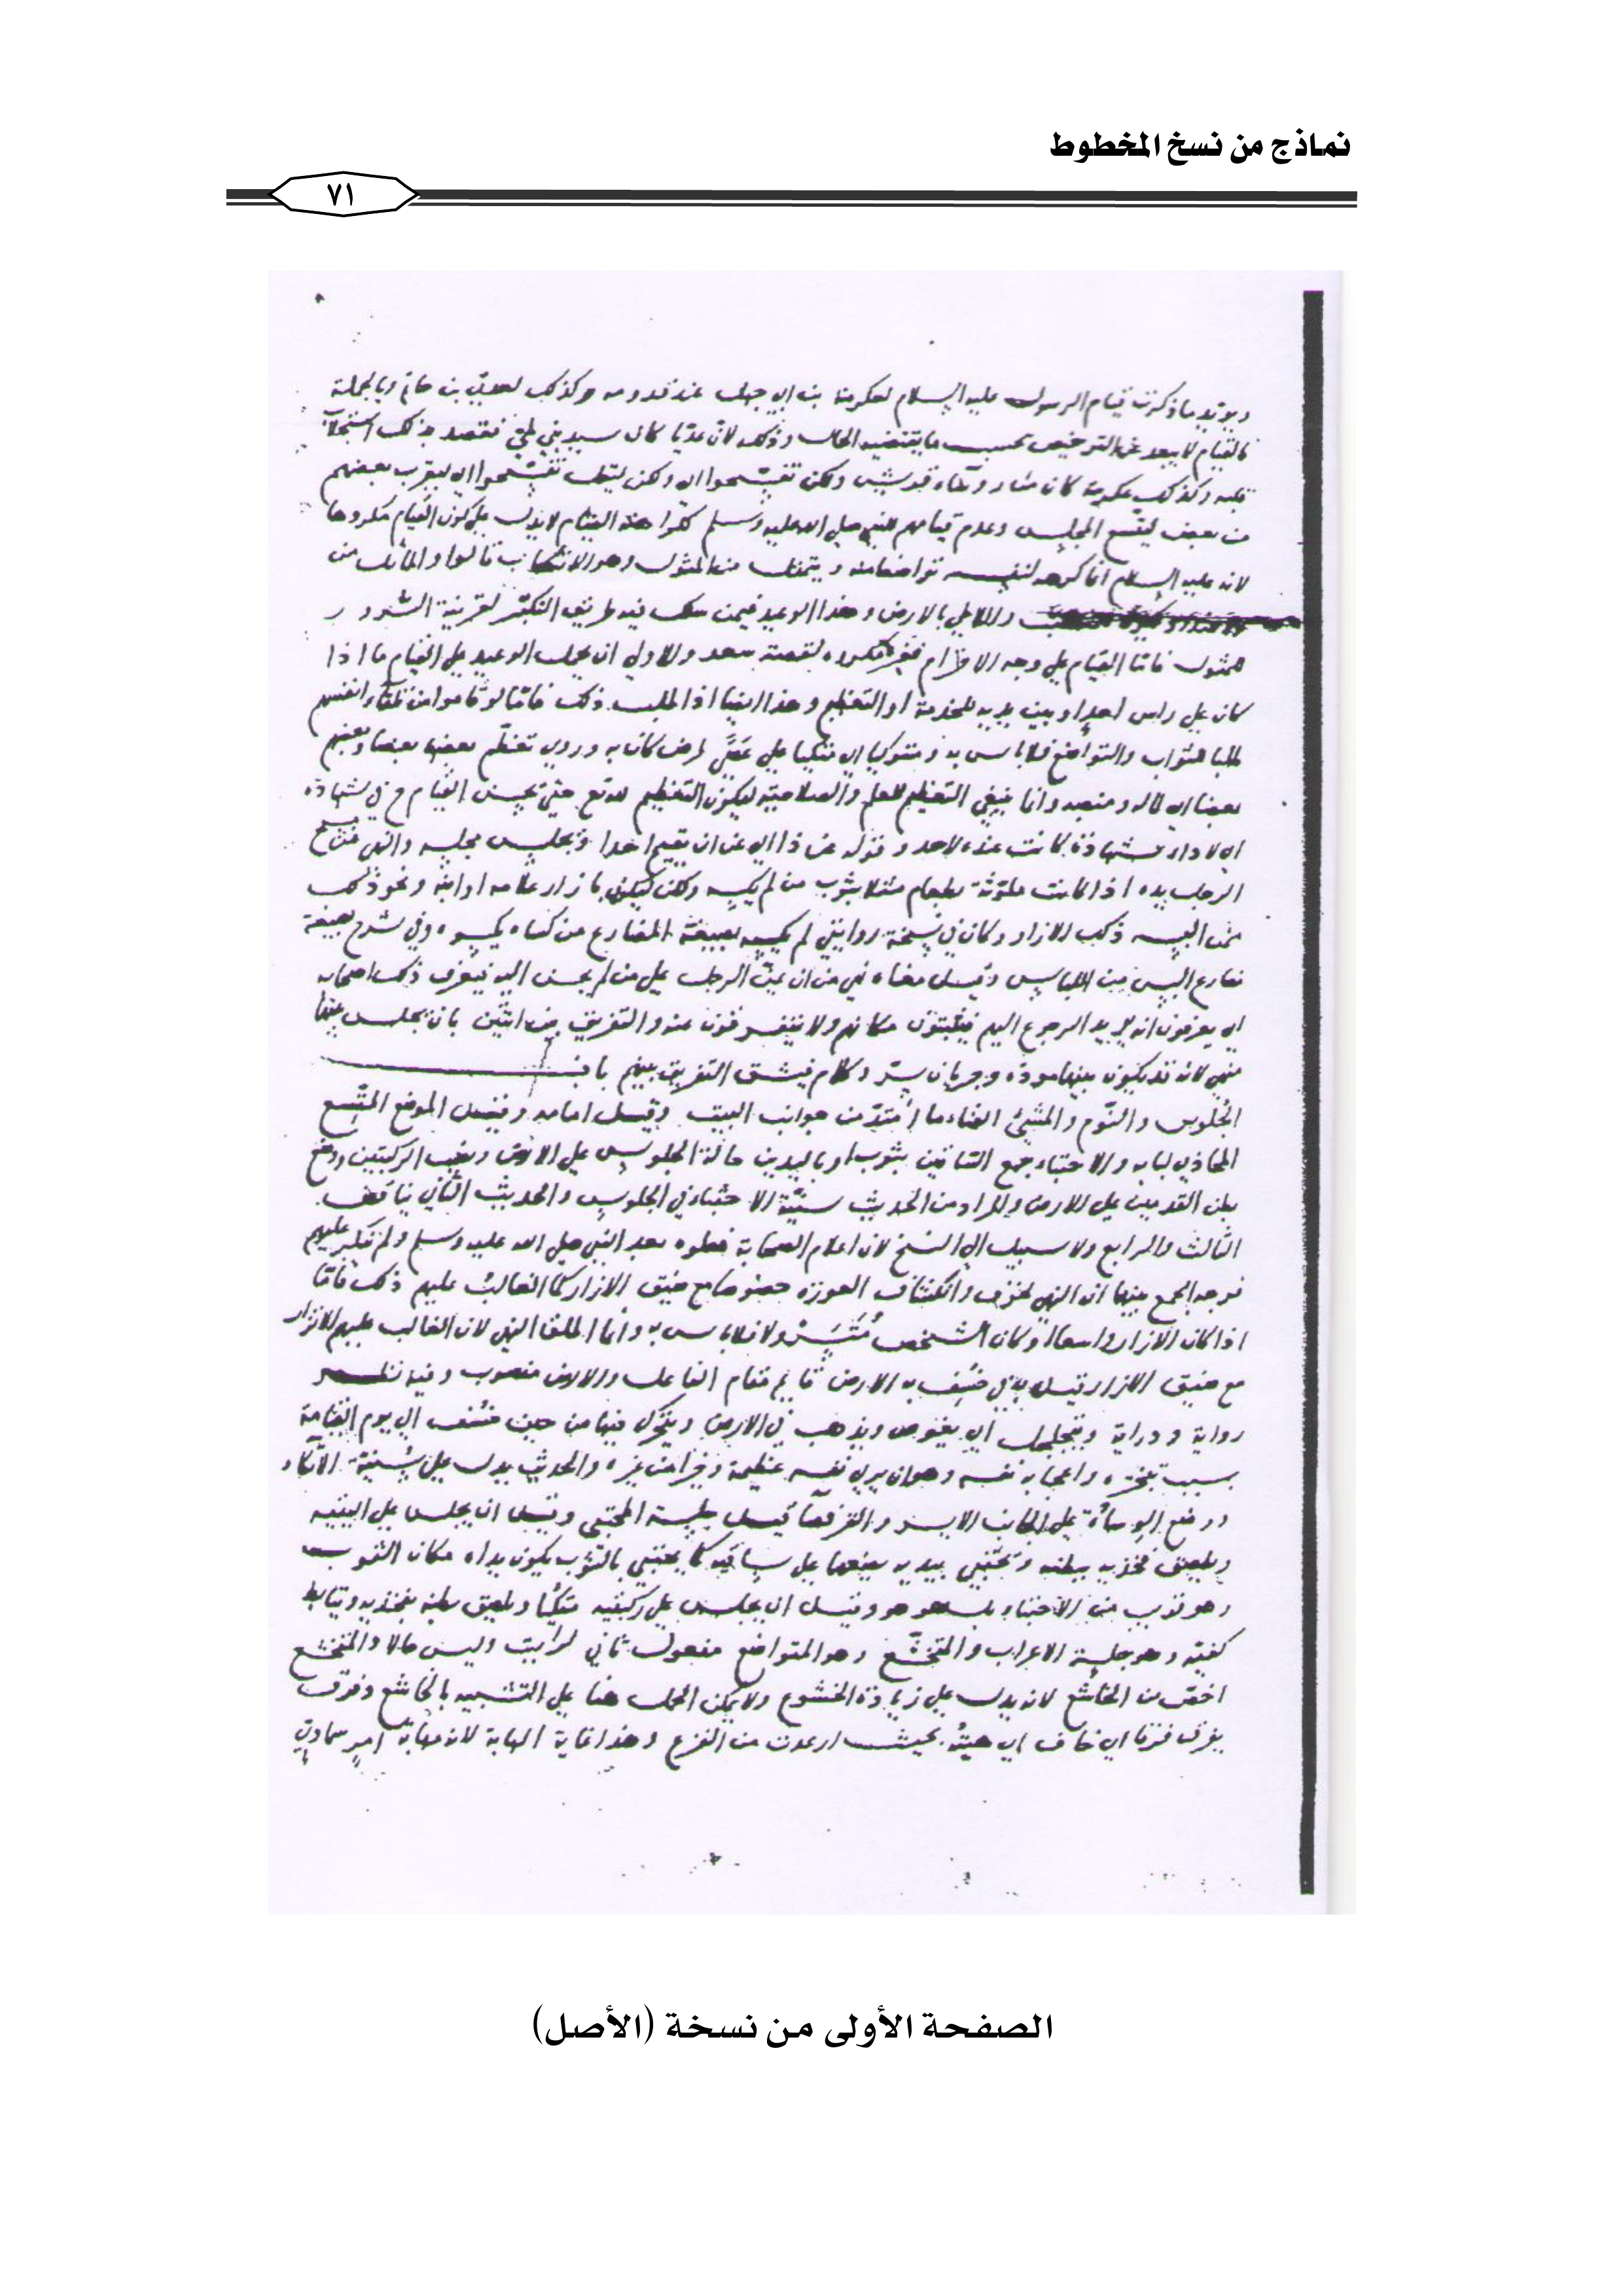 نماذج من نسخ المخطوط
٧١
ويؤيد ما ذكرت قيام الرسول عليه السلام لعكرمة بن ابي جهل عند قدومه وكذلك لعدي بن حاتم وبالجملة
فالقيام لا يبعد عن الترخيص بحسب ما يقتضيه الحال وذلك لان عديا كان سيد بني طي فقصد بذلك استجلاب
قلبه وكذلك عكرمة كان من رؤساء قريش ولكن تفسحوا اي ولكن ليقل تفسحوا اي ليقرب بعضهم
من بعض ليتسع المجلس وعدم قيامهم للنبي صلى الله عليه وسلم لهذا القيام لا يدل على كون القيام مكروها
لانه عليه السلام انما كرهه لنفسه تواضعا منه ويتمثل من المثول وهو الانتصاب قالوا والماثل من
واللاطي بالارض وهذا الوعيد فيمن سلك فيه طريق التكبر لقرينة السرور
للمثول فاما القيام على وجه الاكرام فغير مكروه لقصة سعد والاولى ان يحمل الوعيد على القيام ما اذا
كان على راس احد او بين يديه للخدمة او التعظيم وهذا ايضا اذا طلب ذلك فاما لو قاموا من تلقاء انفسهم
طلبا للثواب والتواضع فلا باس به ومتوكيا اي متكيا على عصى لمرض كان به وروي تعظم بعضها بعضا وبعضهم
بعضا اي لماله ومنصبه وانما ينبغي التعظيم للعلم والصلاحية ليكون التعظيم لله تع حتى يحسن القيام ح في شهادة
اي لاداء شهادة كانت عنده لاحد وقوله عن ذا اي عن ان يقيم احدا ويجلس مجلسه والنهي عن مسح
الرجل يده اذا كانت ملوثة بطعام مثلا بثوب من لم يكسه ولكن ليكن بازار غلامه او ابنه ونحو ذلك
ممن البسه ذلك الازار وكان في نسخة روايتي لم يكسه بصيغة المضارع من كساه يكسوه وفي شرح بصيغة
مضارع البس من اللباس وقيل معناه نهي من ان يمسح الرجل على من لم يحسن اليه فيعرف ذلك اصحابه
اي يعرفون انه يريد الرجوع اليهم فيثبتون مكانهم ولا يتفرقون عنه والتفريق بين اثنين بان يجلس بينهما
منهي لانه قد يكون بينهما مودة وجريان سر وكلام فيشق التفريق بينهم باب
الجلوس والنوم والمشي الفناء ما امتد من جوانب البيت وقيل امامه وقيل الموضع المتسع
المحاذي لبابه والاحتباء جمع الساقين بثوب او باليدين حالة الجلوس على الارض ونصب الركبتين ووضع
بطن القدمين على الارض والمراد من الحديث سنية الاحتباء في الجلوس والحديث الثاني يناقض
الثالث والرابع ولا سبيل الى النسخ لان اعلام الصحابة فعلوه بعد النبي صلى الله عليه وسلم ولم ينكر عليهم
فوجه الجمع بينهما ان النهي لخوف وانكشاف العورة خصوصا مع ضيق الازار كما الغالب عليهم ذلك فاما
اذا كان الازار واسعا او كان الشخص فلا باس به وانما اطلق النهي لان الغالب عليهم الاتزار
مع ضيق الازار قيل به في خسف به الارض قايم مقام الفاعل والارض منصوب وفيه نظر
رواية ودراية ويتجلجل اي يغوص ويذهب في الارض ويتحرك فيها من حين خسف الى يوم القيامة
بسبب تبختره واعجابه نفسه وهو ان يرى نفسه عظيمة وخيرا من غيره والحديث يدل على سنية الاتكاء
ووضع الوسادة على الجانب الايسر والقرفصا قيل جلسة المحتبي وقيل ان يجلس على اليتيه
ويلصق فخذيه ببطنه ويحتبي بيديه يضعهما على ساقيه كما يحتبي بالثوب يكون يداه مكان الثوب
وهو قريب من الاحتباء بل هو هو وقيل ان يجلس على ركبتيه متكيا ويلصق بطنه بفخذيه ويتابط
كفيه وهو جلسة الاعراب والمتخشع وهو المتواضع مفعول ثاني لرايت وليس حالا والمتخشع
اخص من الخاشع لانه يدل على زيادة الخشوع ولا يمكن الحمل هنا على التشبيه بالخاشع وفرق
يفرق فرقا اي خاف اي هيبة بحيث ارعدت من الفزع وهذا غاية المهابة لانه مهابة امر سماوي
الصفحة الأولى من نسخة (الأصل)